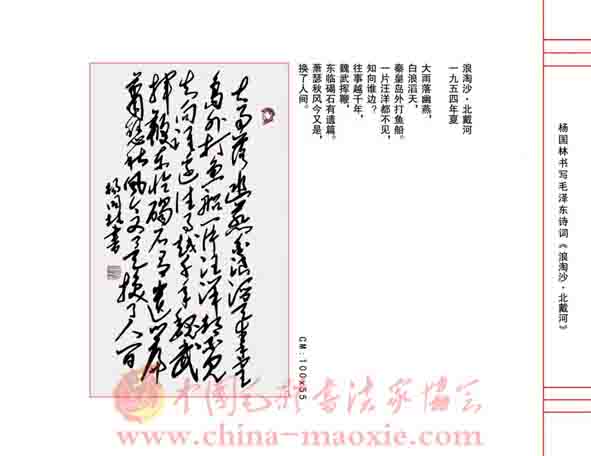 杨国林书写毛泽东诗词《浪淘沙·北戴河》
浪淘沙·北戴河
一九五四年夏
大雨落幽燕，
白浪滔天，
秦皇岛外打鱼船。
一片汪洋都不见，
知向谁边？
往事越千年，
魏武挥鞭，
东临碣石有遗篇。
萧瑟秋风今又是，
换了人间。
大雨落幽燕白浪滔天秦皇
岛外打鱼船一片汪洋都不见
知向谁边往事越千年魏武
挥鞭东临碣石有遗篇
萧瑟秋风今又是换了人间
杨国林书
CM:100x55
中国毛 书法家协会
www.china-maoxie.com